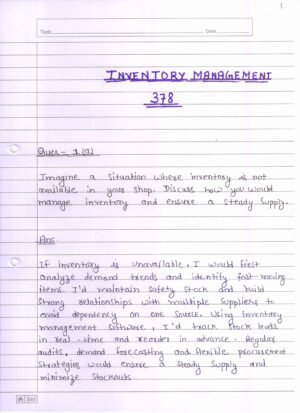 1.
Topic
Date
INVENTORY MANAGEMENT
378
Ques- 1(a)
Imagine a situation where inventory is not
available in your shop. Discuss how you would
manage inventory and ensure a steady supply.
Ans-
If inventory is unavailable, I would first
analyze demand trends and identify fast-moving
items. I'd maintain safety stock and build
strong relationships with multiple suppliers to
avoid dependency on one source. Using inventory
management software, I'd track stock levels
in real-time and reorder in advance. Regular
audits, demand forecasting and flexible procurement
strategies would ensure a steady supply and
minimize stockouts.